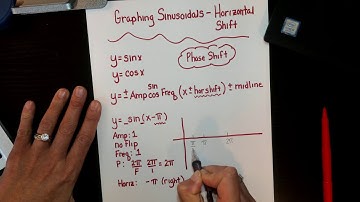 Graphing Sinusoidals - Horizontal
Shift
y = sin x
y = cos x
Phase Shift
y = ± Amp sin cos Freq (x ± hor shift) ± midline
y = _sin (x - π)
Amp: 1
no flip
Freq: 1
P: 2π/F 2π/1 = 2π
Horiz: -π (right)
π 2π